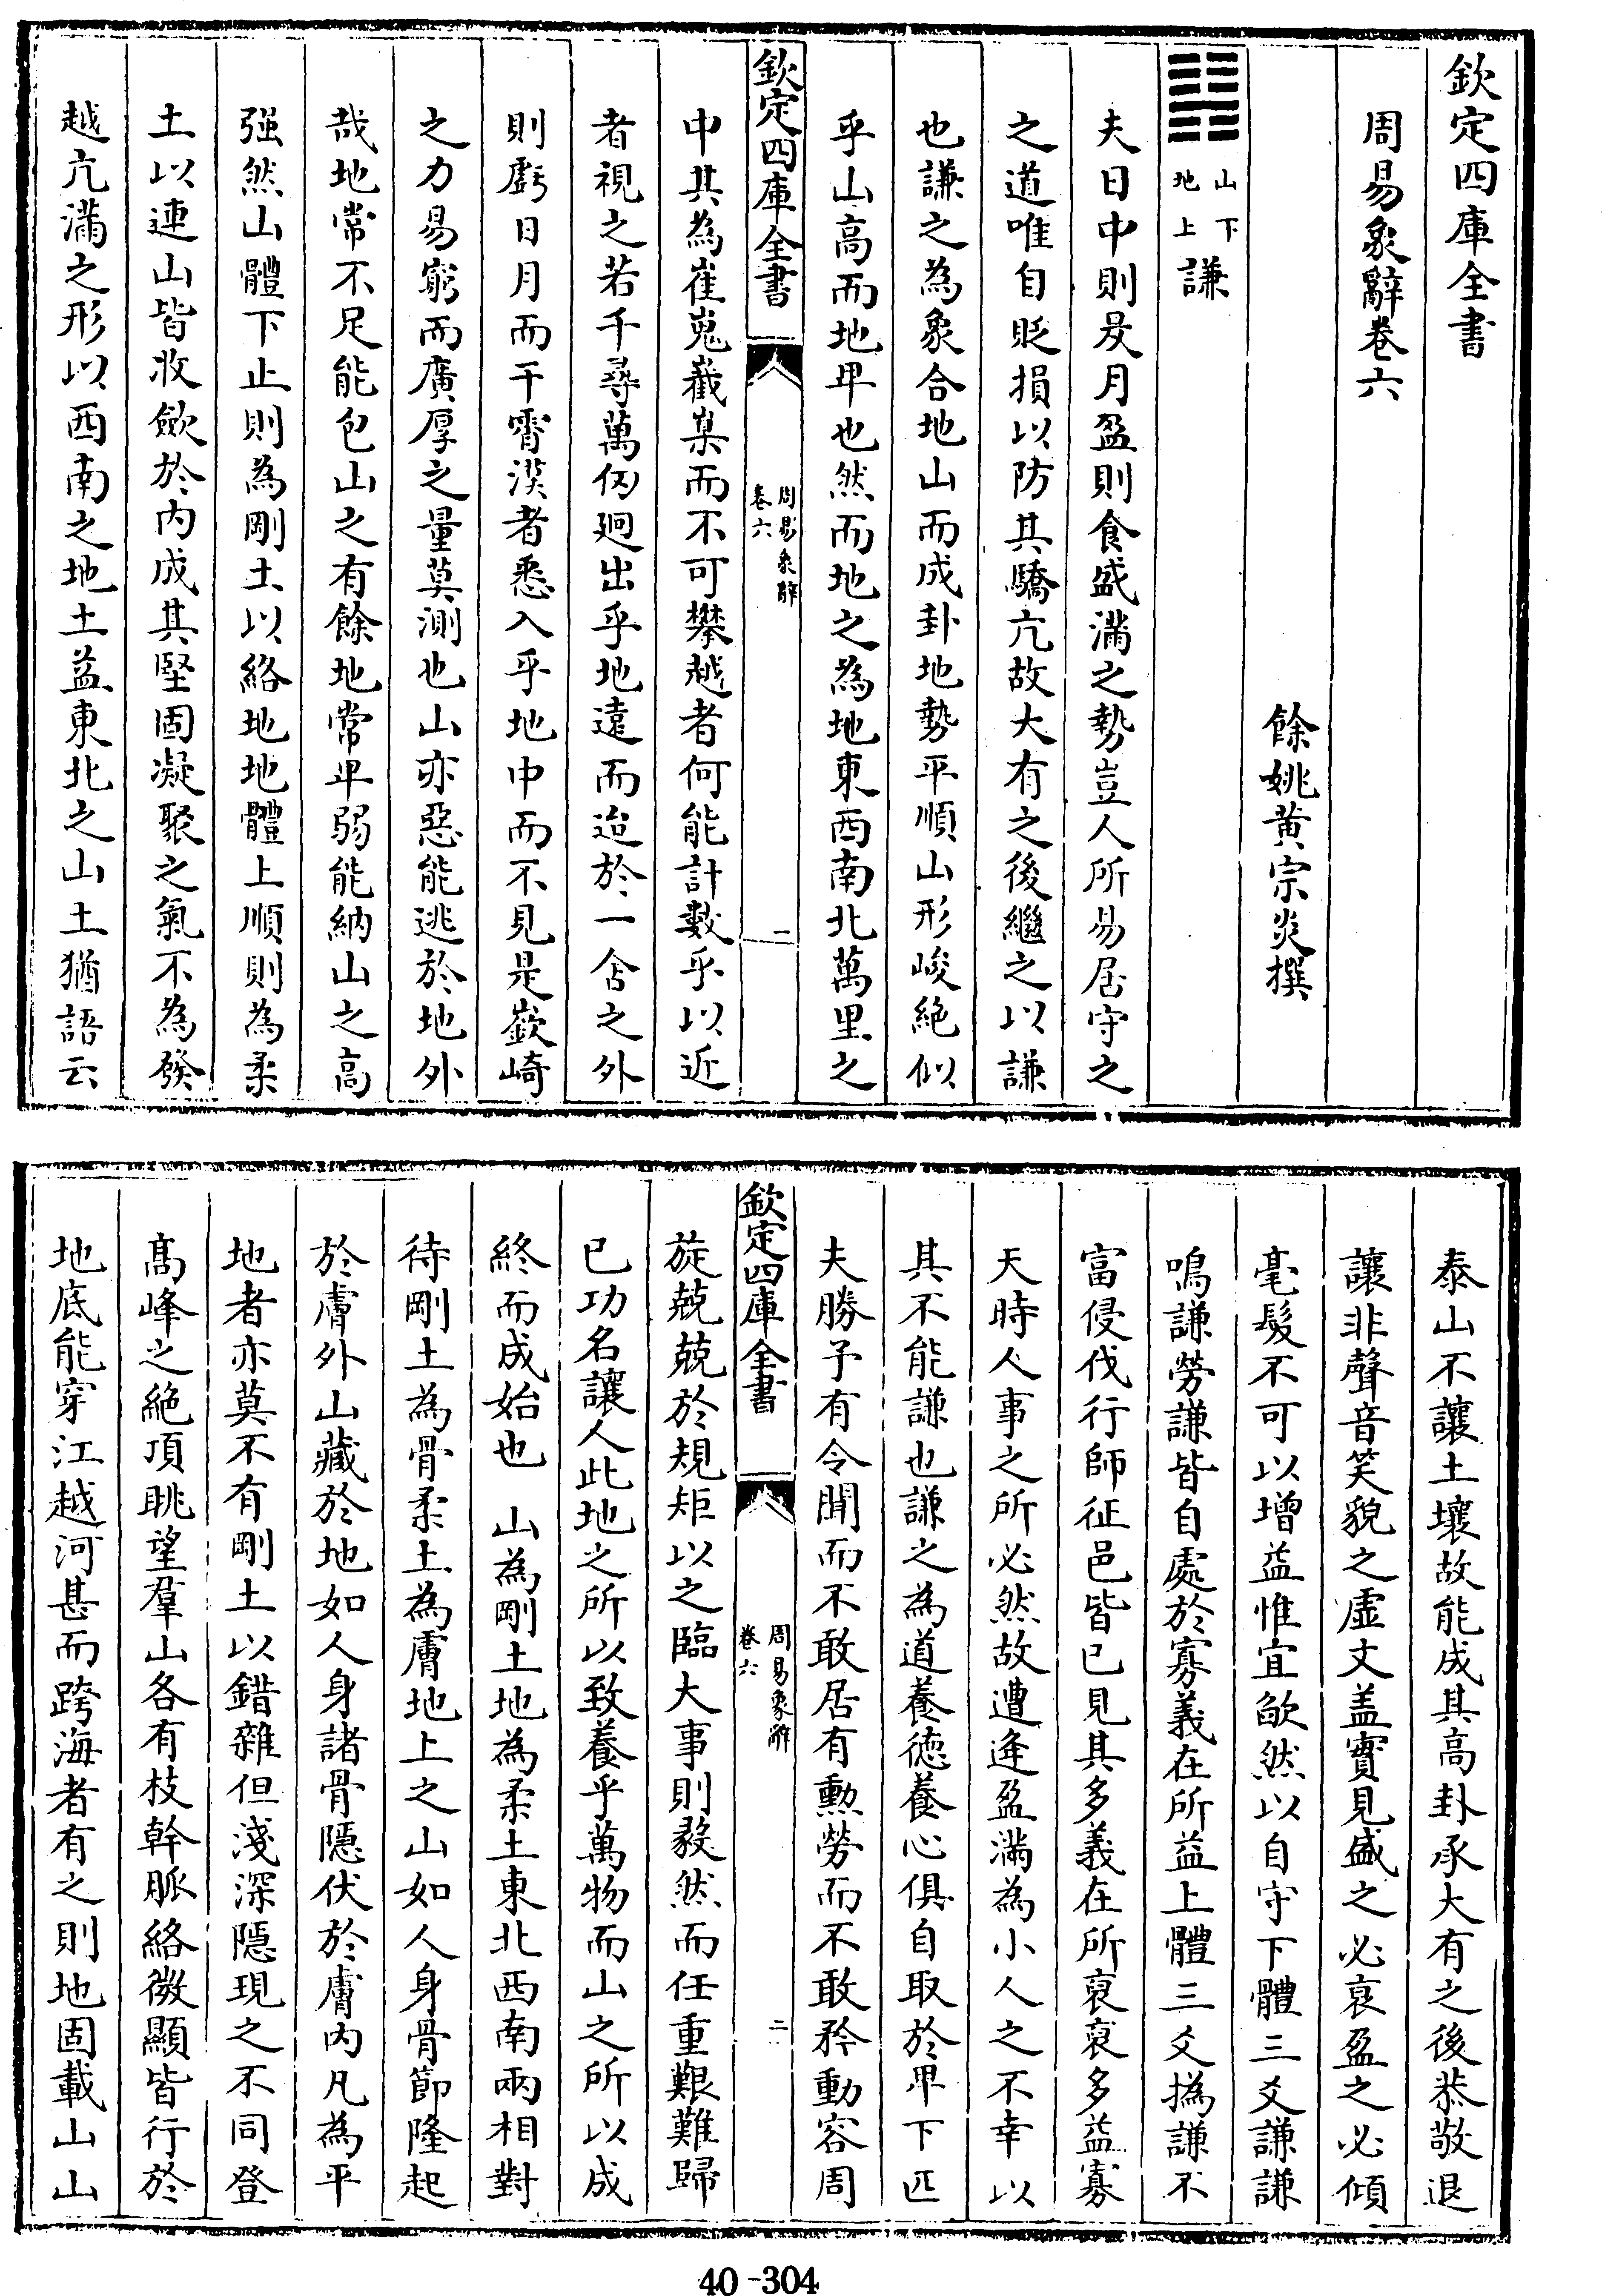 欽定四庫全書
周易象辭卷六
餘姚黃宗炎撰
山下
地上
謙
夫日中則昃月盈則食盛滿之勢豈人所易居守之
之道唯自貶損以防其驕亢故大有之後繼之以謙
也謙之為象合地山而成卦地勢平順山形峻絶似
乎山高而地卑也然而地之為地東西南北萬里之
欽定四庫全書
周易象辭
卷六
一
中其為崔嵬嶻嵲而不可攀越者何能計數乎以近
者視之若千尋萬仞廻出乎地遠而迨於一舍之外
則虧日月而干霄漢者悉入乎地中而不見是嶔崎
之力易窮而廣厚之量莫測也山亦惡能逃於地外
哉地常不足能包山之有餘地常卑弱能納山之高
强然山體下止則為剛土以絡地地體上順則為柔
土以連山皆收斂於内成其堅固凝聚之氣不為發
越亢滿之形以西南之地土益東北之山土猶語云
泰山不讓土壤故能成其高卦承大有之後恭敬退
讓非聲音笑貌之虛文盖實見盛之必衰盈之必傾
毫髮不可以增益惟宜欿然以自守下體三爻謙謙
鳴謙勞謙皆自處於寡義在所益上體三爻撝謙不
富侵伐行師征邑皆已見其多義在所裒裒多益寡
天時人事之所必然故遭逄盈滿為小人之不幸以
其不能謙也謙之為道養徳養心俱自取於卑下匹
夫勝予有令聞而不敢居有勲勞而不敢矜動容周
欽定四庫全書
周易象辭
卷六
二
旋兢兢於規矩以之臨大事則毅然而任重艱難歸
已功名讓人此地之所以致養乎萬物而山之所以成
終而成始也　山為剛土地為柔土東北西南兩相對
待剛土為骨柔土為膚地上之山如人身骨節隆起
於膚外山藏於地如人身諸骨隱伏於膚内凡為平
地者亦莫不有剛土以錯雜但淺深隱現之不同登
髙峰之絶頂眺望羣山各有枝幹脈絡微顯皆行於
地底能穿江越河甚而跨海者有之則地固載山山
40-304